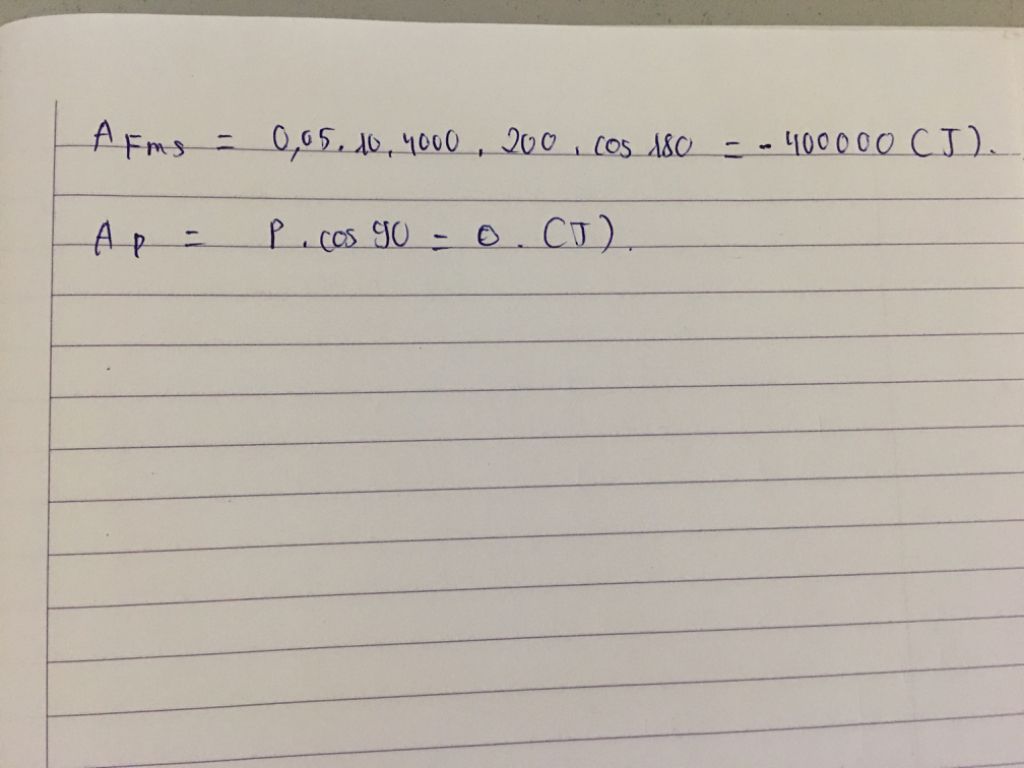 A Fms = 0,05. 10. 4000 . 200 . cos 180 = - 400000 (J).
A P = P . cos 90 = 0 . (J).